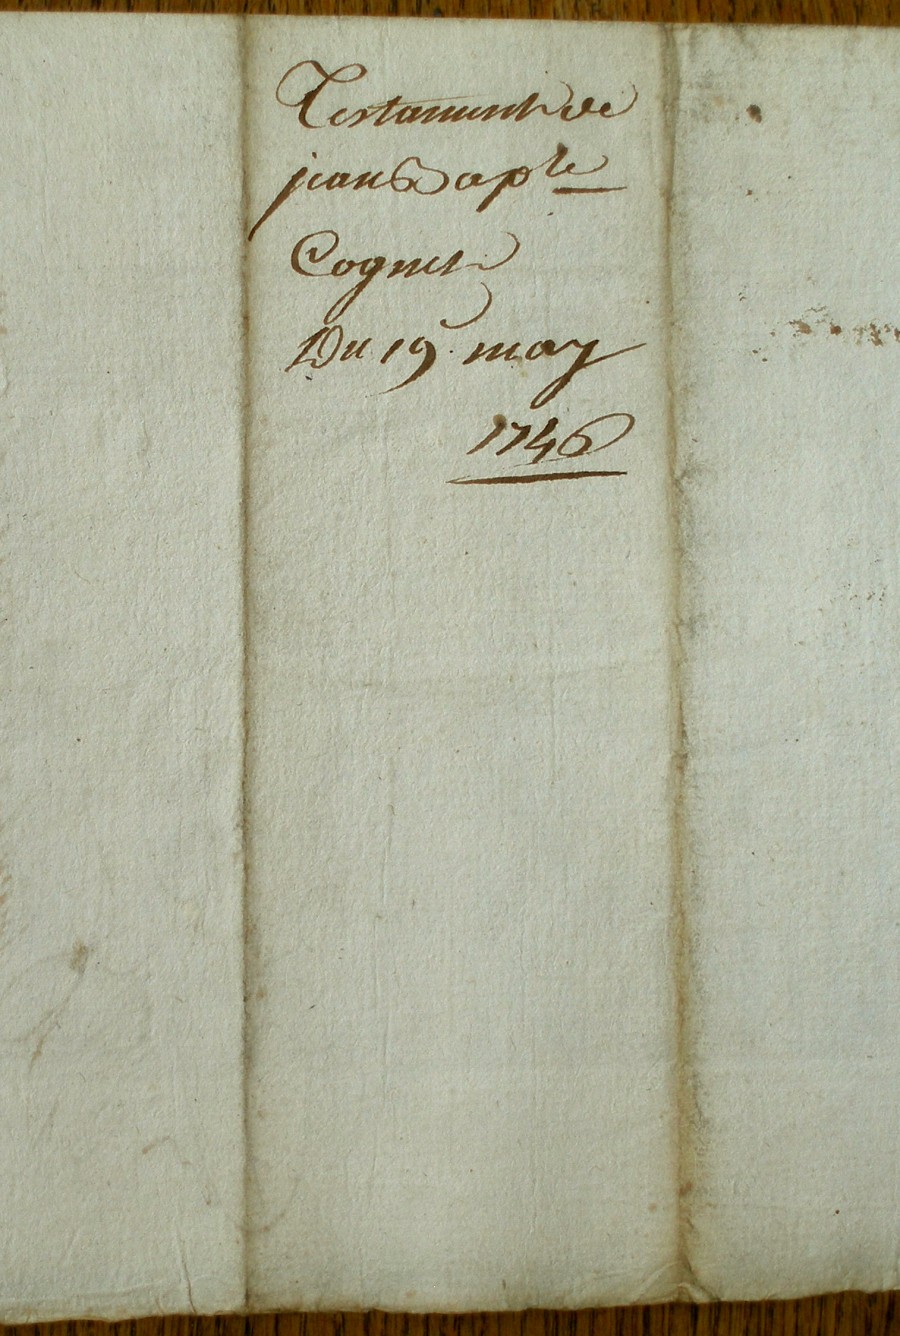 Testament de
jean Bapte
Cognet
Du 19 may
1746